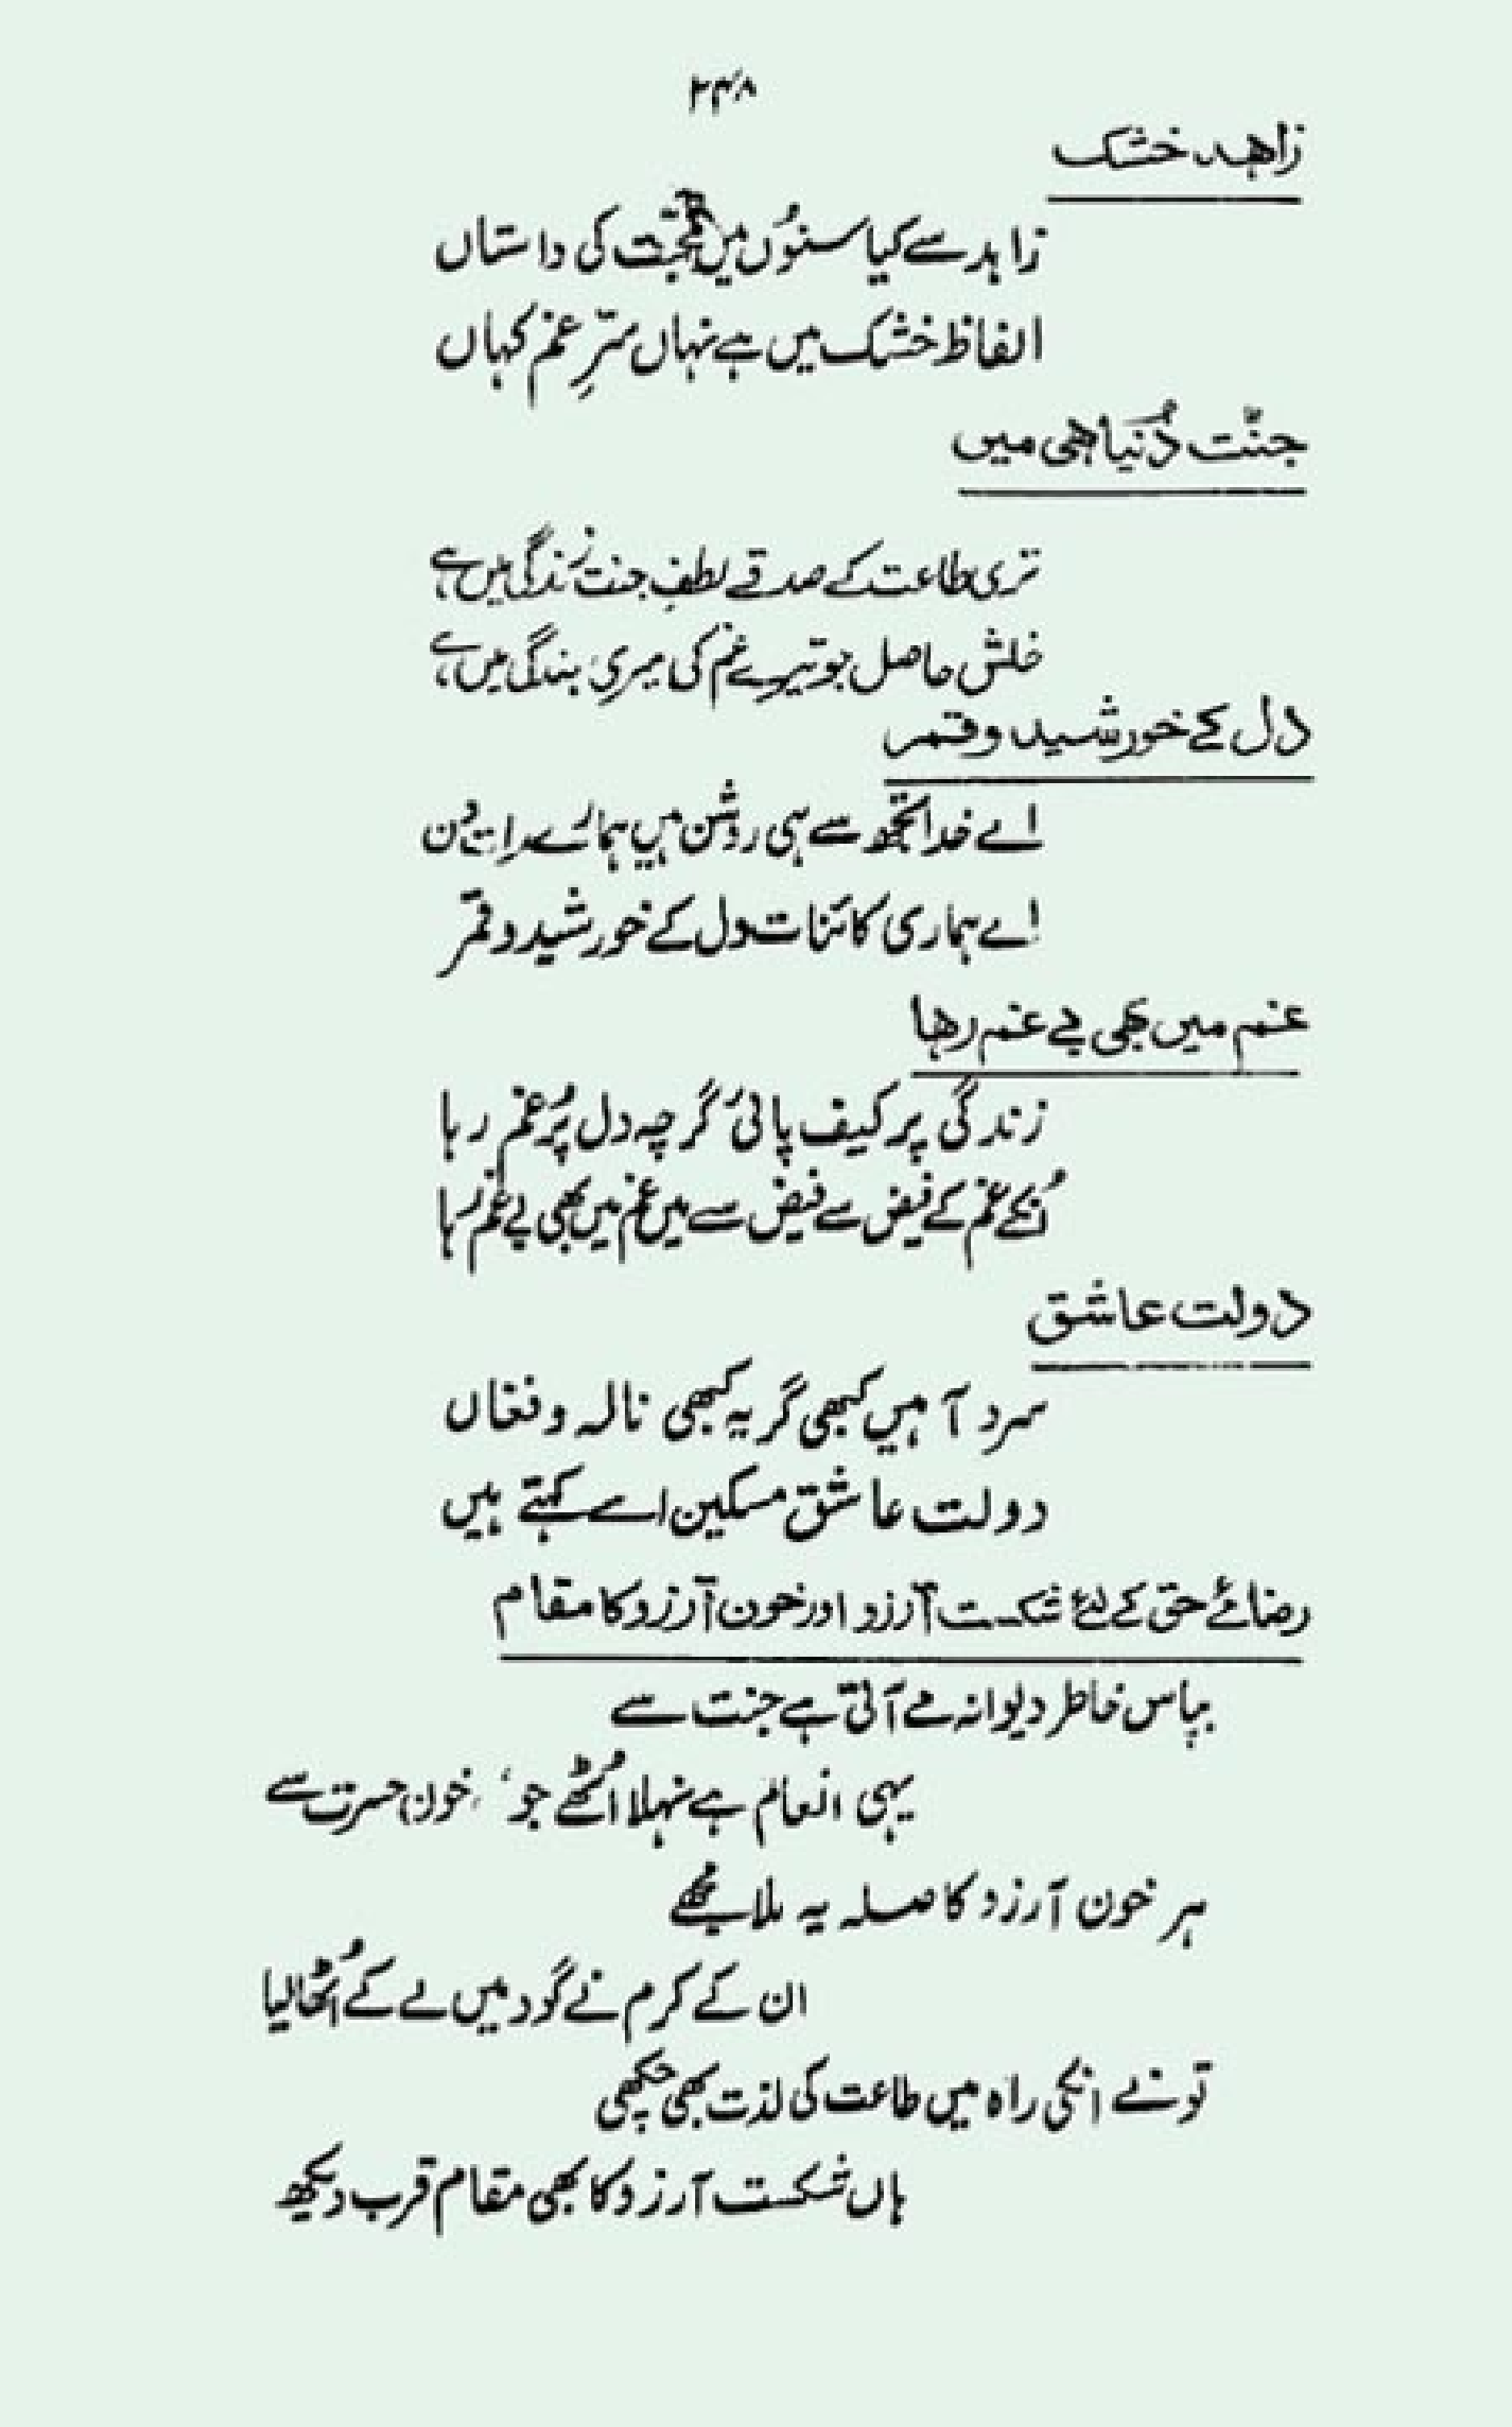 ۲۴۸
زاهد خشک
زاہد سے کیا سنوں میں محبت کی داستاں
الفاظ خشک میں ہے نہاں سّرِ غم کہاں
جنّت دُنیا ھی میں
تری طاعت کے صدقے لطفِ جنت زندگی میں ہے
خلش حاصل جو تیرے غم کی میری بندگی میں ہے
دل کے خورشید و قمر
اے خدا تجھ سے ہی روشن ہیں ہمارے رات دن
اے ہماری کائنات دل کے خورشید و قمر
غم میں بھی بے غم رھا
زندگی پر کیف پائی گرچہ دل پُر غم رہا
اُنکے غم کے فیض سے فیض سے میں غم میں بھی بے غم رہا
دولت عاشق
سرد آہیں کبھی گریہ کبھی نالہ و فغاں
دولت عاشق مسکین اسے کہتے ہیں
رضائے حق کے لئے شکست آرزو اور خون آرزو کا مقام
بپاس خاطر دیوانہ مے آتی ہے جنت سے
یہی انعام ہے نہلا اُٹھے جو، خون حسرت سے
ہر خون آرزو کا صلہ یہ ملا مجھے
ان کے کرم نے گود میں لے کے اُٹھا لیا
تو نے انکی راہ میں طاعت کی لذت بھی چکھی
ہاں شکست آرزو کا بھی مقام قرب دیکھ